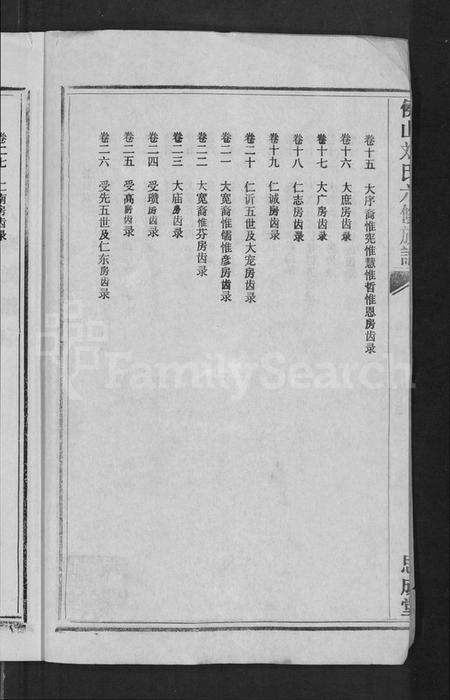 卷十五　大序裔惟宪惟慧惟哲惟恩房齿录
卷十六　大庶房齿录
卷十七　大广房齿录
卷十八　仁志房齿录
卷十九　仁诚房齿录
卷二十　仁沂五世及大宠房齿录
卷二一　大宽裔惟儒惟彦房齿录
卷二二　大宽裔惟芬房齿录
卷二三　大庙房齿录
卷二四　受瓒房齿录
卷二五　受高房齿录
卷二六　受先五世及仁东房齿录
卷二七　仁南房齿录
思成堂
FamilySearch